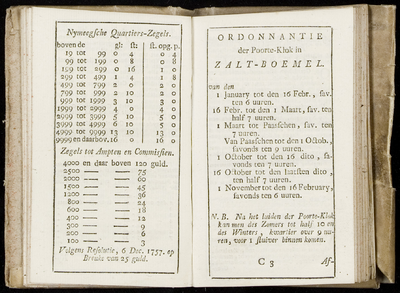 Nymeegsche Quartiers-Zegels.
boven de gl: ft: ft. opg. p.
19 tot 99 0 4 0 4
99 tot 199 0 8 0 8
199 tot 299 0 16 1 0
299 tot 499 1 4 1 8
499 tot 799 2 0 2 0
799 tot 999 2 10 2 0
999 tot 1999 3 10 3 0
1999 tot 2999 4 0 4 0
2999 tot 3999 5 10 5 0
3999 tot 4999 6 10 5 0
4999 tot 9999 13 10 13 0
9999 en daarbov. 16 0 16 0
Zegels tot Ampten en Commissien.
4000 en daar boven 120 guld.
2500 — — 75
2000 — — 60
1500 — — 45
1200 — — 36
800 — — 24
600 — — 18
400 — — 12
300 — — 9
200 — — 6
100 — — 3
Volgens Resolutie, 6 Dec. 1757. op
Breuke van 25 guld.
ORDONNANTIE
der Poorte-Klok in
ZALT-BOEMEL.
van den
1 January tot den 16 Febr., fav.
ten 6 uuren.
16 Febr. tot den 1 Maart, fav. ten
half 7 uuren.
1 Maart tot Paaschen, fav. ten
7 uuren.
Van Paaschen tot den 1 Octob.,
favonds ten 9 uuren.
1 October tot den 16 dito, fa-
vonds ten 7 uuren.
16 October tot den laatsten dito,
ten half 7 uuren.
1 November tot den 16 February,
favonds ten 6 uuren.
N. B. Na het luiden der Poorte-Klok
kan men des Zomers tot half 10 en
des Winters, kwartier over 9 uu-
ren, voor 1 stuiver binnen komen.
C 3 Af-